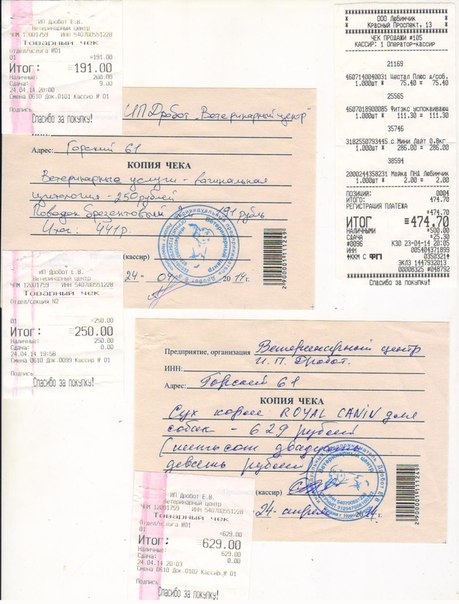 ИП Дробот Е.В.
Ветеринарный центр
ЧЕМ 12001759 ИНН 540700551228
Товарный чек
отдел/услога №01
=191.00
Итог: =191.00
Наличные: 200.00
Сдача: 9.00
24.04.14 20:00
Смена 0610 Док.0101 Кассир № 01
Подпись
Спасибо за покупку!
ИП Дробот "Ветеринарный центр"
Адрес: Горский 61
КОПИЯ ЧЕКА
Ветеринарные услуги - вагинальная
цитология - 250 рублей
Поводок брезентовый 191 рубль
Итог: 441 р.
(кассир)
24 - 04 2014г.
2900001711249
ИП Дробот Е.В.
Ветеринарный центр
ЧЕМ 12001759 ИНН 540700551228
Товарный чек
Отдел/секция №2
=250.00
Итог: =250.00
Наличные: 250.00
Сдача: 0.00
24.04.14 19:58
Смена 0610 Док.0099 Кассир № 01
Подпись
Спасибо за покупку!
ООО Любимчик
Красный Проспект, 13
ЧЕК ПРОДАЖИ #105
КАССИР: 1 Оператор-кассир
21169
4607140040031
1.000шт X 75.40 = 75.40
25565
4607018900085 Фитэкс успокаиваю
1.000шт X 111.30 = 111.30
35746
3182550793445 с Мини Лайт 0.8кг
1.000шт X 286.00 = 286.00
38594
2000244358231 Майка ПНД Любимчик
1.000шт X 2.00 = 2.00
ПОЗИЦИЙ: 0004
ИТОГО: 474.70
РЕГИСТРАЦИЯ ПЛАТЕЖА
=474.70
ИТОГ =474.70
НАЛИЧНЫМИ =500.00
СДАЧА =25.30
#0096 КЗО 23-04-14 20:05
ИНН 005404371899
*ККМ С ФП 0350321#
ЭКЛЗ 1447932013
00008325 #048792
Спасибо за покупку!
Предприятие, организация Ветеринарный центр
ИНН: И.П. Дробот.
Адрес: Горский 61
КОПИЯ ЧЕКА
Сух корм ROYAL CANIN для
собак - 629 рублей
(шестьсот двадцать
девять рублей)
(кассир)
24. апреля 2014г.
ИП Дробот Е.В.
Ветеринарный центр
ЧЕМ 12001759 ИНН 540700551228
Товарный чек
отдел/услога №01
=629.00
Итог: =629.00
Наличные: 629.00
Сдача: 0.00
24.04.14 20:03
Смена 0610 Док.0102 Кассир № 01
Подпись
Спасибо за покупку!